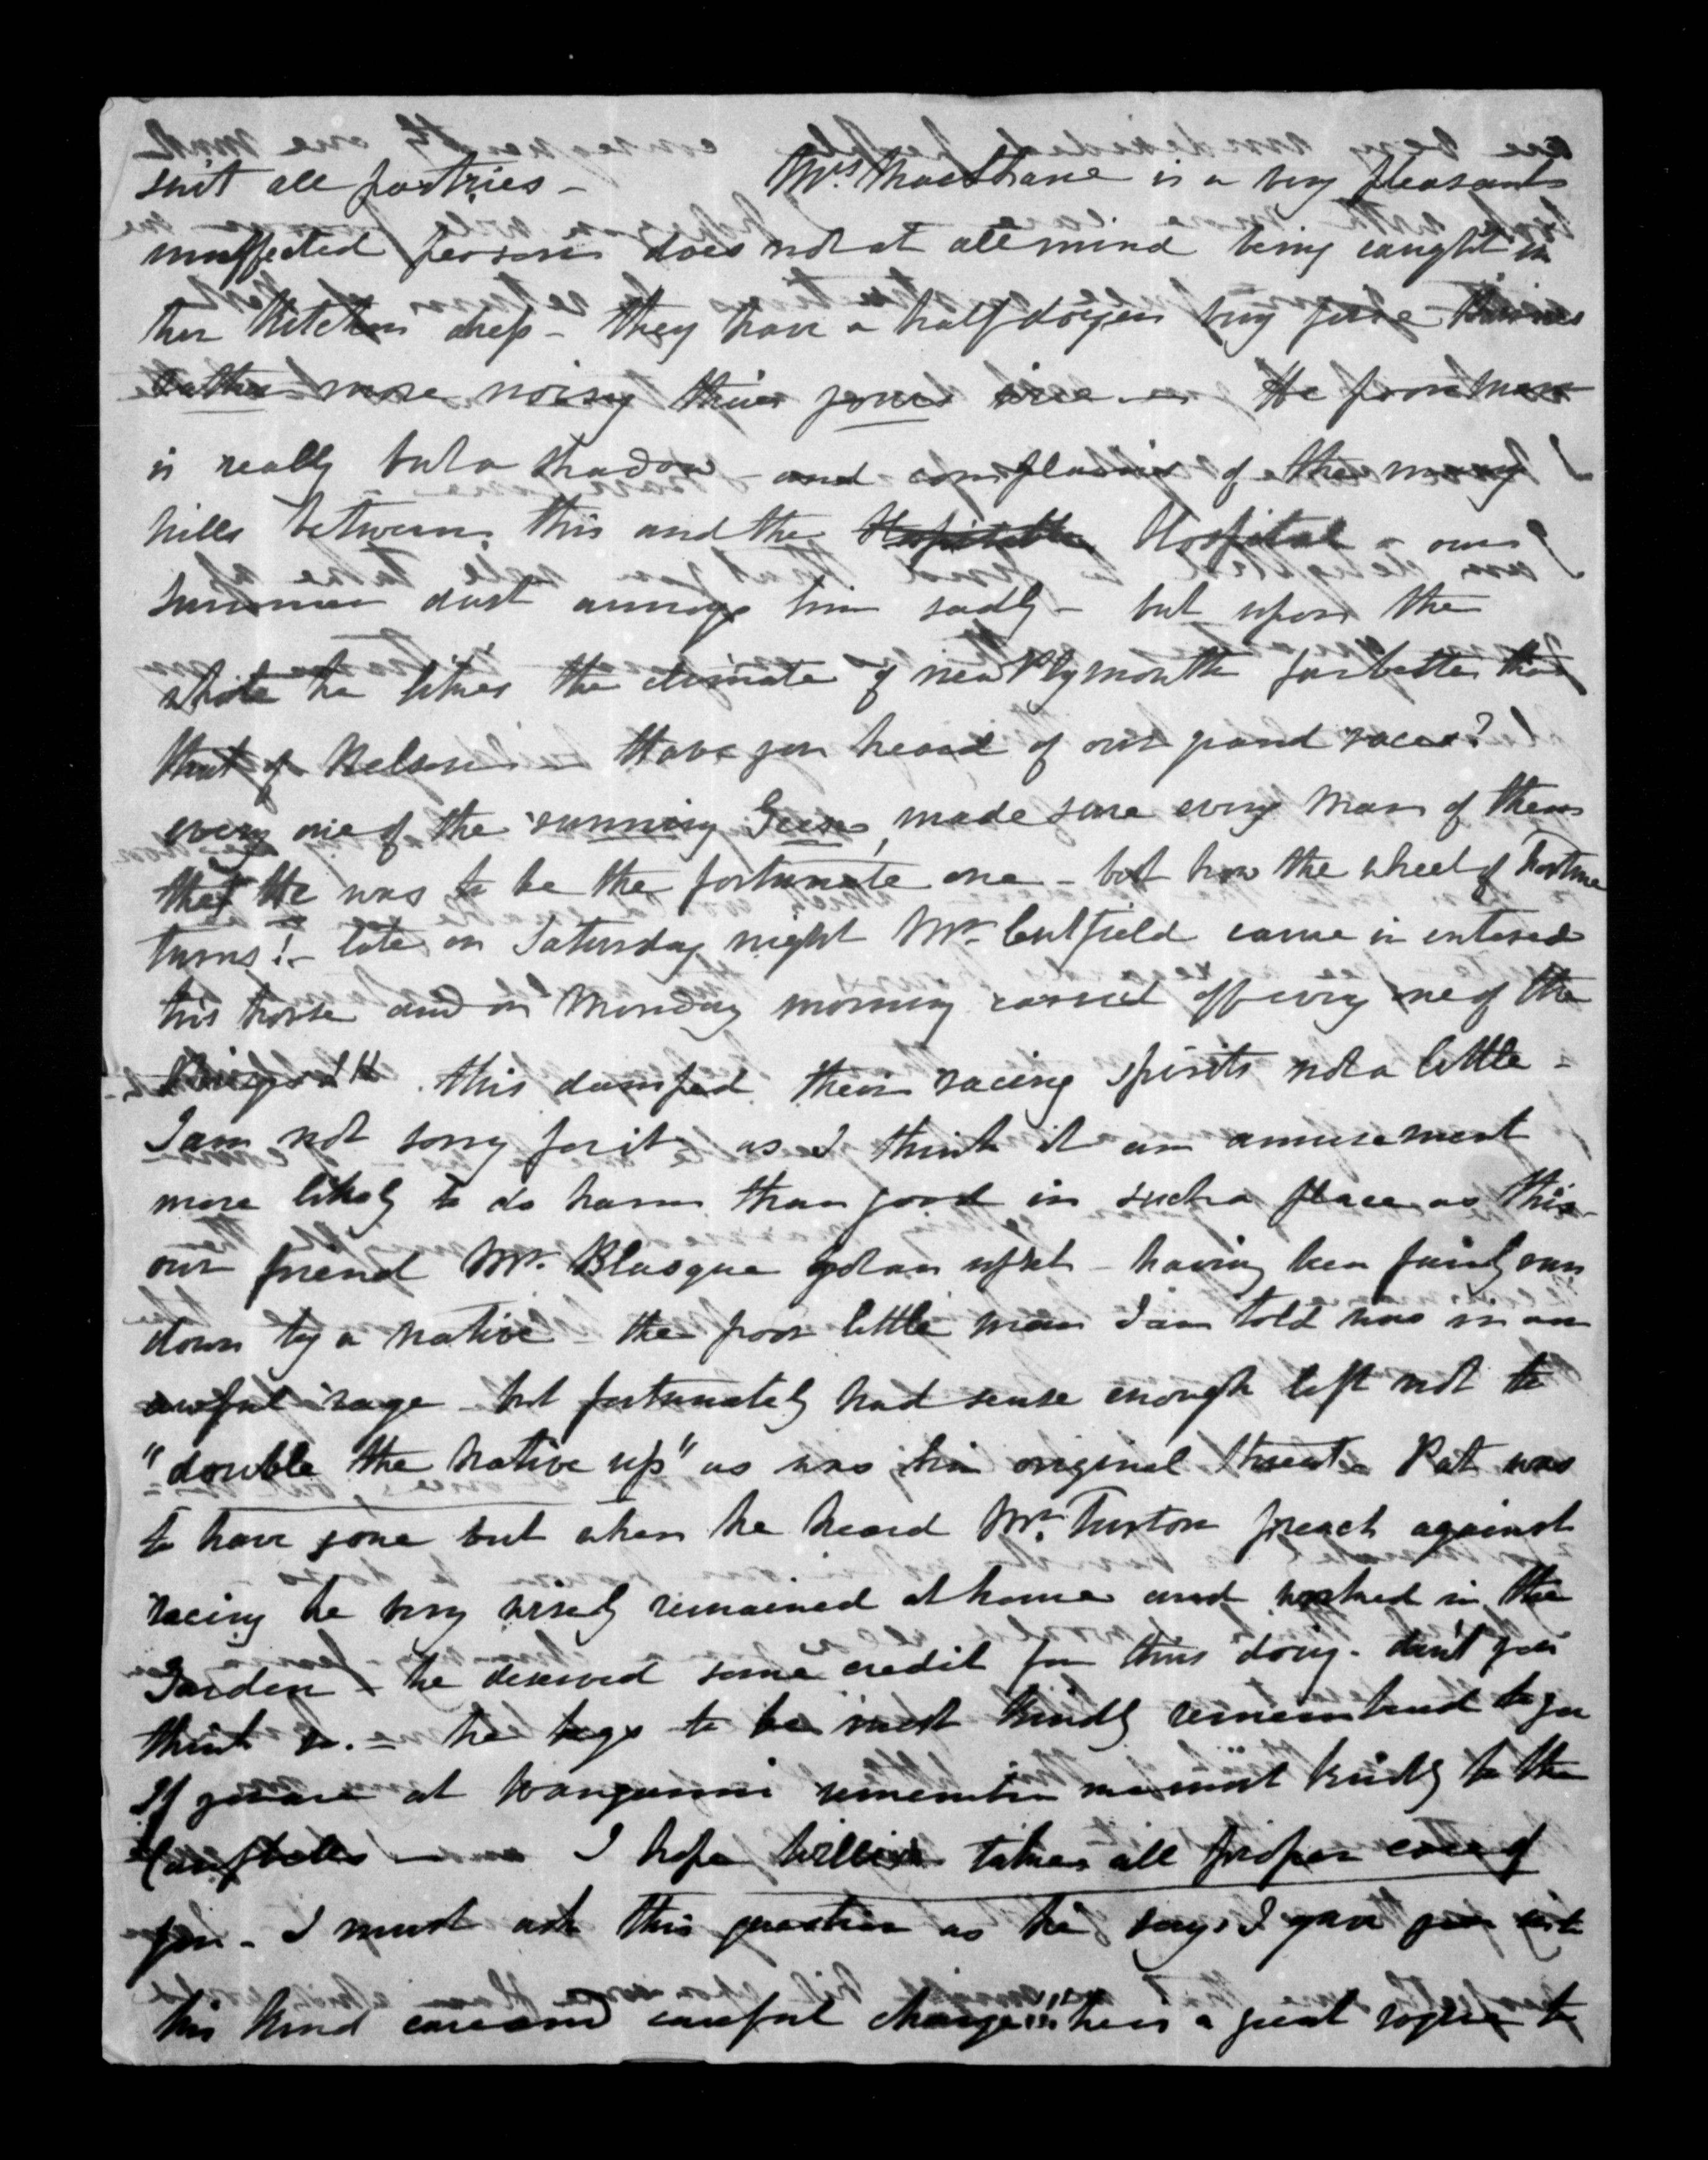 suit all parties - Mrs. MacShane is a very pleasant
unaffected person does not at all mind being caught in
her Kitchen dress - they have a half dozen very fine
rather more noisy than yours were - He poor man
is really but a shadow - and complains of the many
hills between this and the Hospital - our
summer dust annoys him sadly - but upon the
whole he likes the climate of New Plymouth far better than
that of Nelson - Have you heard of our grand races?
every one of the running Geese, made sure every man of them
that He was to be the fortunate one - but how the wheel of Fortune
turns! - late on Saturday night Mr. Cutfield came in entered
his horse and on Monday morning carried off every one of the
this damped their racing spirits not a little -
I am not sorry for it as I think it an amusement
more likely to do harm than good in such a place as this -
our friend Mr. Blasque got an upset - having been fairly run
down by a native - the poor little man I am told was in an
awful rage - but fortunately had sense enough left not to
"double the native up" as was his original threat - Pat was
to have gone but when he heard Mr. Turton preach against
racing he very wisely remained at home and worked in the
Garden - he deserved some credit for thus doing - don't you
think so. - he begs to be most kindly remembered to you
If you are at Wanganui remember me most kindly to the
Campbells - I hope William takes all proper care of
you - I must ask this question as he says I gave you into
his kind care and careful charge!!! he is a great rogue to